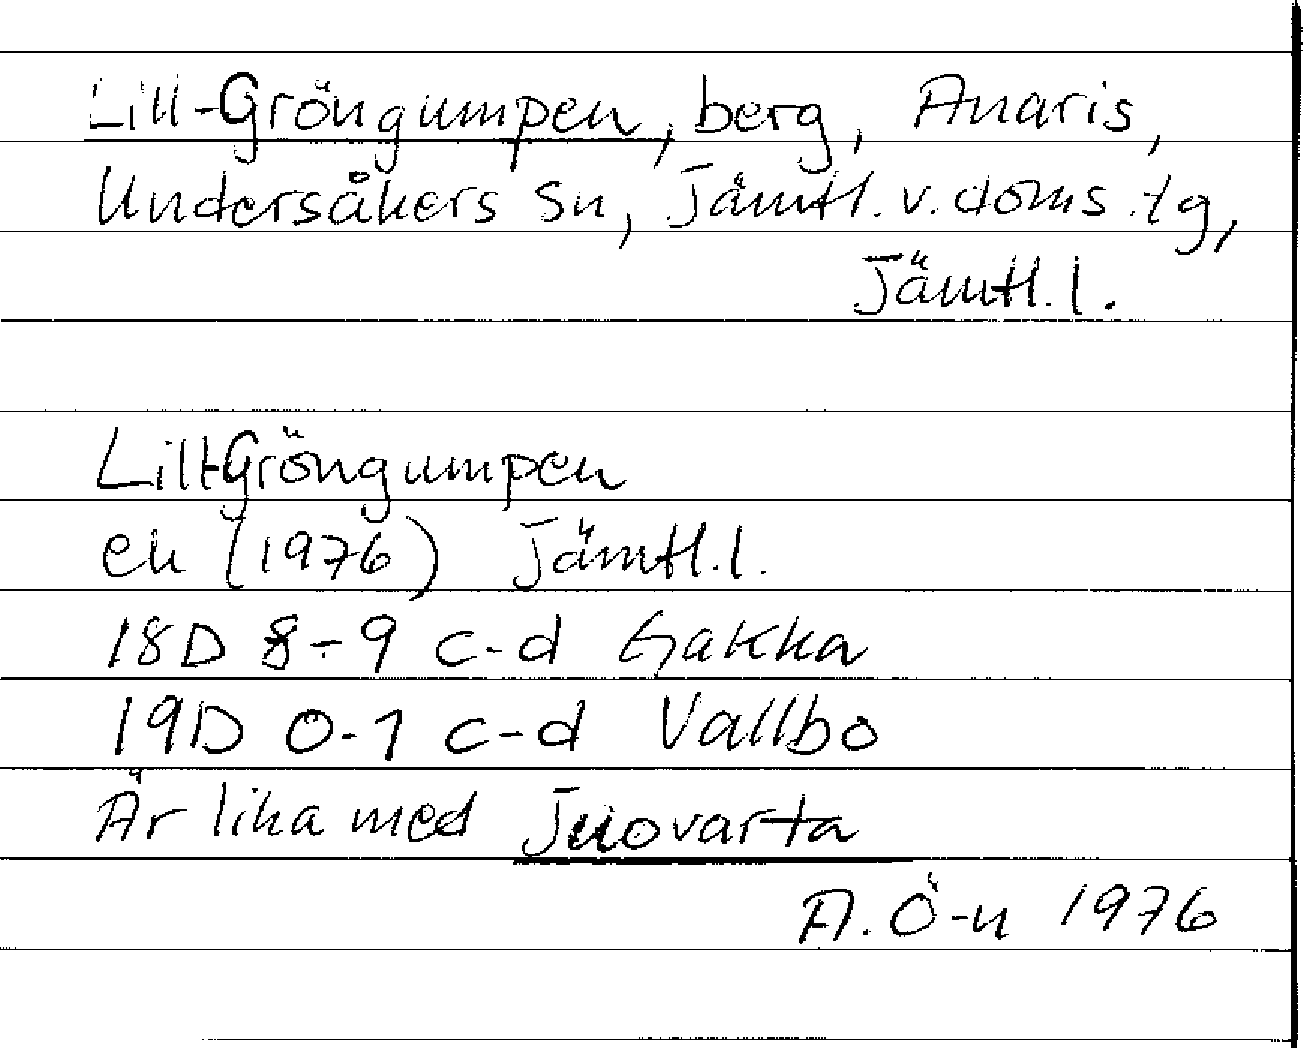 Lill-Gröngumpen, berg, Anaris,
Undersåkers sn, Jämtl. v. doms. tg,
Jämtl. l.
Lill-Gröngumpen
ek (1976) Jämtl. l.
18D 8-9 c-d Gakka
19D 0-1 c-d Vallbo
Är lika med Juovarta
A. Ö-n 1976